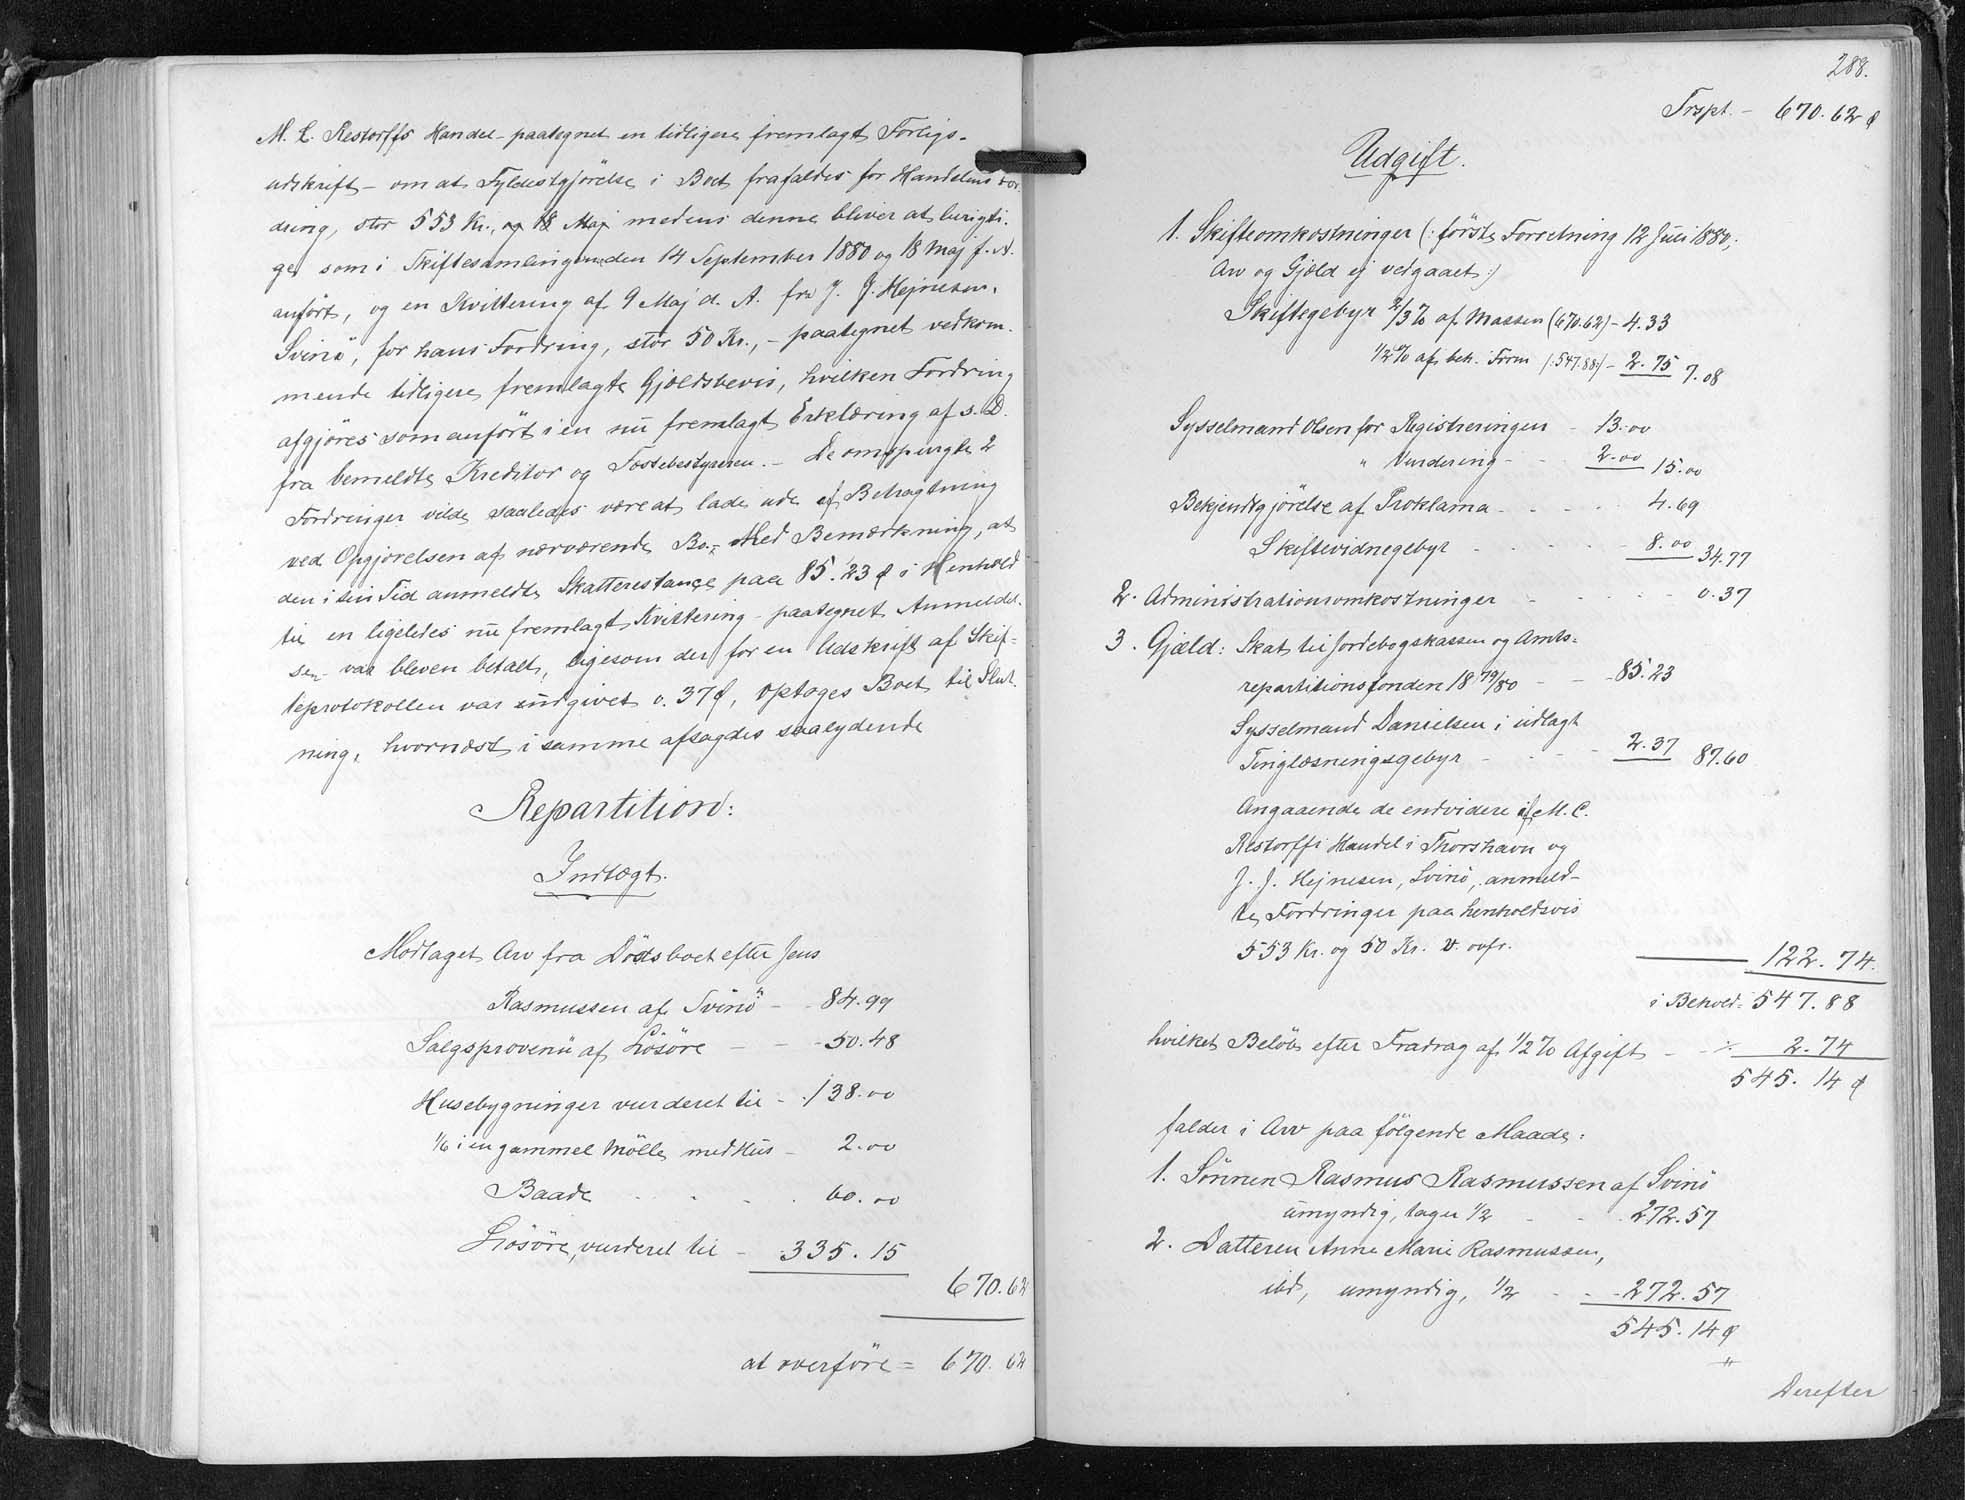 M. C. Restorffs Handel - paategnet en tidligere fremlagt Forligs-
udskrift - om at Fyldestgjörelse i Boet frafaldes for Handelens For-
dring, stor 553 Kr., og 18 Maj medens denne bliver at berigti-
ge som i Skiftesamlingen den 14 September 1880 og 18 Maj f. A.
anfört, og en Kvittering af 9 Maj d. A. fra J. J. Hejnesen,
Svinö, for hans Fordring, stor 50 Kr., - paategnet vedkom-
mende tidligere fremlagte Gjældsbevis, hvilken Fordring
afgjöres som anfört i en nu fremlagt Erklæring af s. D.
fra bemeldte Kreditor og Fæstebestyreren. - De omspurgte 2
Fordringer vilde saaledes være at lade ude af Betragtning
ved Opgjörelsen af nærværende Bo. - Med Bemærkning, at
den i sin Tid anmeldte Skatterestance paa 85.23 ø i Henhold
til en ligeledes nu fremlagt Kvittering - paategnet Anmeldel-
sen - var bleven betalt, ligesom der for en Udskrift af Skif-
teprotokollen var udgivet 0.37 ø, optoges Boet til Slut-
ning, hvornæst i samme afsagdes saalydende
Repartition:
Indtægt.
Modtaget Arv fra Dödsboet efter Jens
Rasmussen af Svinö - 84.99
Salgsprovenu af Lösöre - - 50.48
Husebygninger vurderet til - 138.00
1/6 i en gammel Mölle med Hus - 2.00
Baade . . . . 60.00
Lösöre, vurderet til - 335.15
670.62
at overföre = 670.62
288.
Trspt. - 670.62 ø
Udgift.
1. Skifteomkostninger (: förste Forretning 12 Juli 1880;
Arv og Gjæld ej vedgaaet :)
Skiftegebyr 2/3 % af Massen (670.62) - 4.33
1/2 % af beh. Form (: 547.88 :) - 2.75 7.08
Sysselmand Olsen for Registreringen - 13.00
" Vurdering - - 2.00 15.00
Bekjendtgjörelse af Proklama - - - 4.69
Skiftevidnegebyr - - - - 8.00 34.77
2. Administrationsomkostninger - - - - 0.37
3. Gjæld: Skat til Jordebogskassen og Amts-
repartitionsfonden 1879/80 - - 85.23
Sysselmand Danielsen i udlagt
Tinglæsningsgebyr - - - 2.37 87.60
Angaaende de endvidere af M. C.
Restorffs Handel i Thorshavn og
J. J. Hejnesen, Svinö, anmeld-
te Fordringer paa henholdsvis
553 Kr. og 50 Kr. v. ovfr.
122.74.
i Behold = 547.88
hvilket Belöb efter Fradrag af 1/2 % Afgift - ÷ 2.74
545.14 ø
falder i Arv paa fölgende Maade:
1. Sönnen Rasmus Rasmussen af Svinö
umyndig, tager 1/2 - - 272.57
2. Datteren Anne Marie Rasmussen,
ibd, umyndig, 1/2 - - 272.57
545.14 ø
"
Derefter